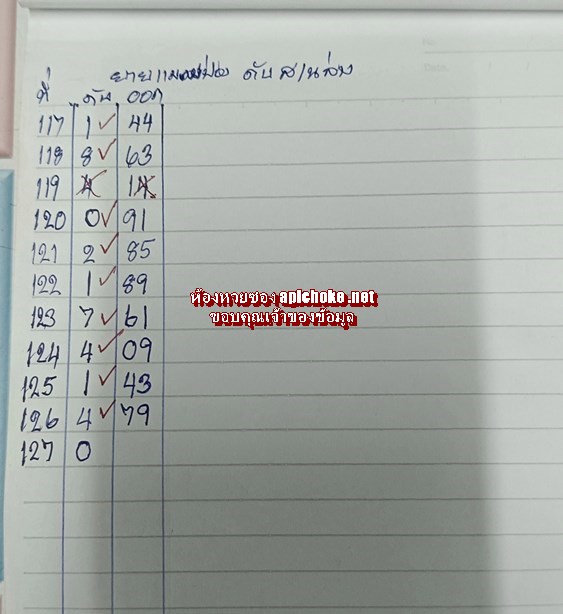 ดับ ส/นล่าง
ที่ ดับ ออก
117 1 ✓ 44
118 8 ✓ 63
119 4 14
120 0 ✓ 91
121 2 ✓ 85
122 1 ✓ 89
123 7 ✓ 61
124 4 ✓ 09
125 1 ✓ 43
126 4 ✓ 79
127 0
ห้องหวยซอง apichoke.net
ขอบคุณเจ้าของข้อมูล